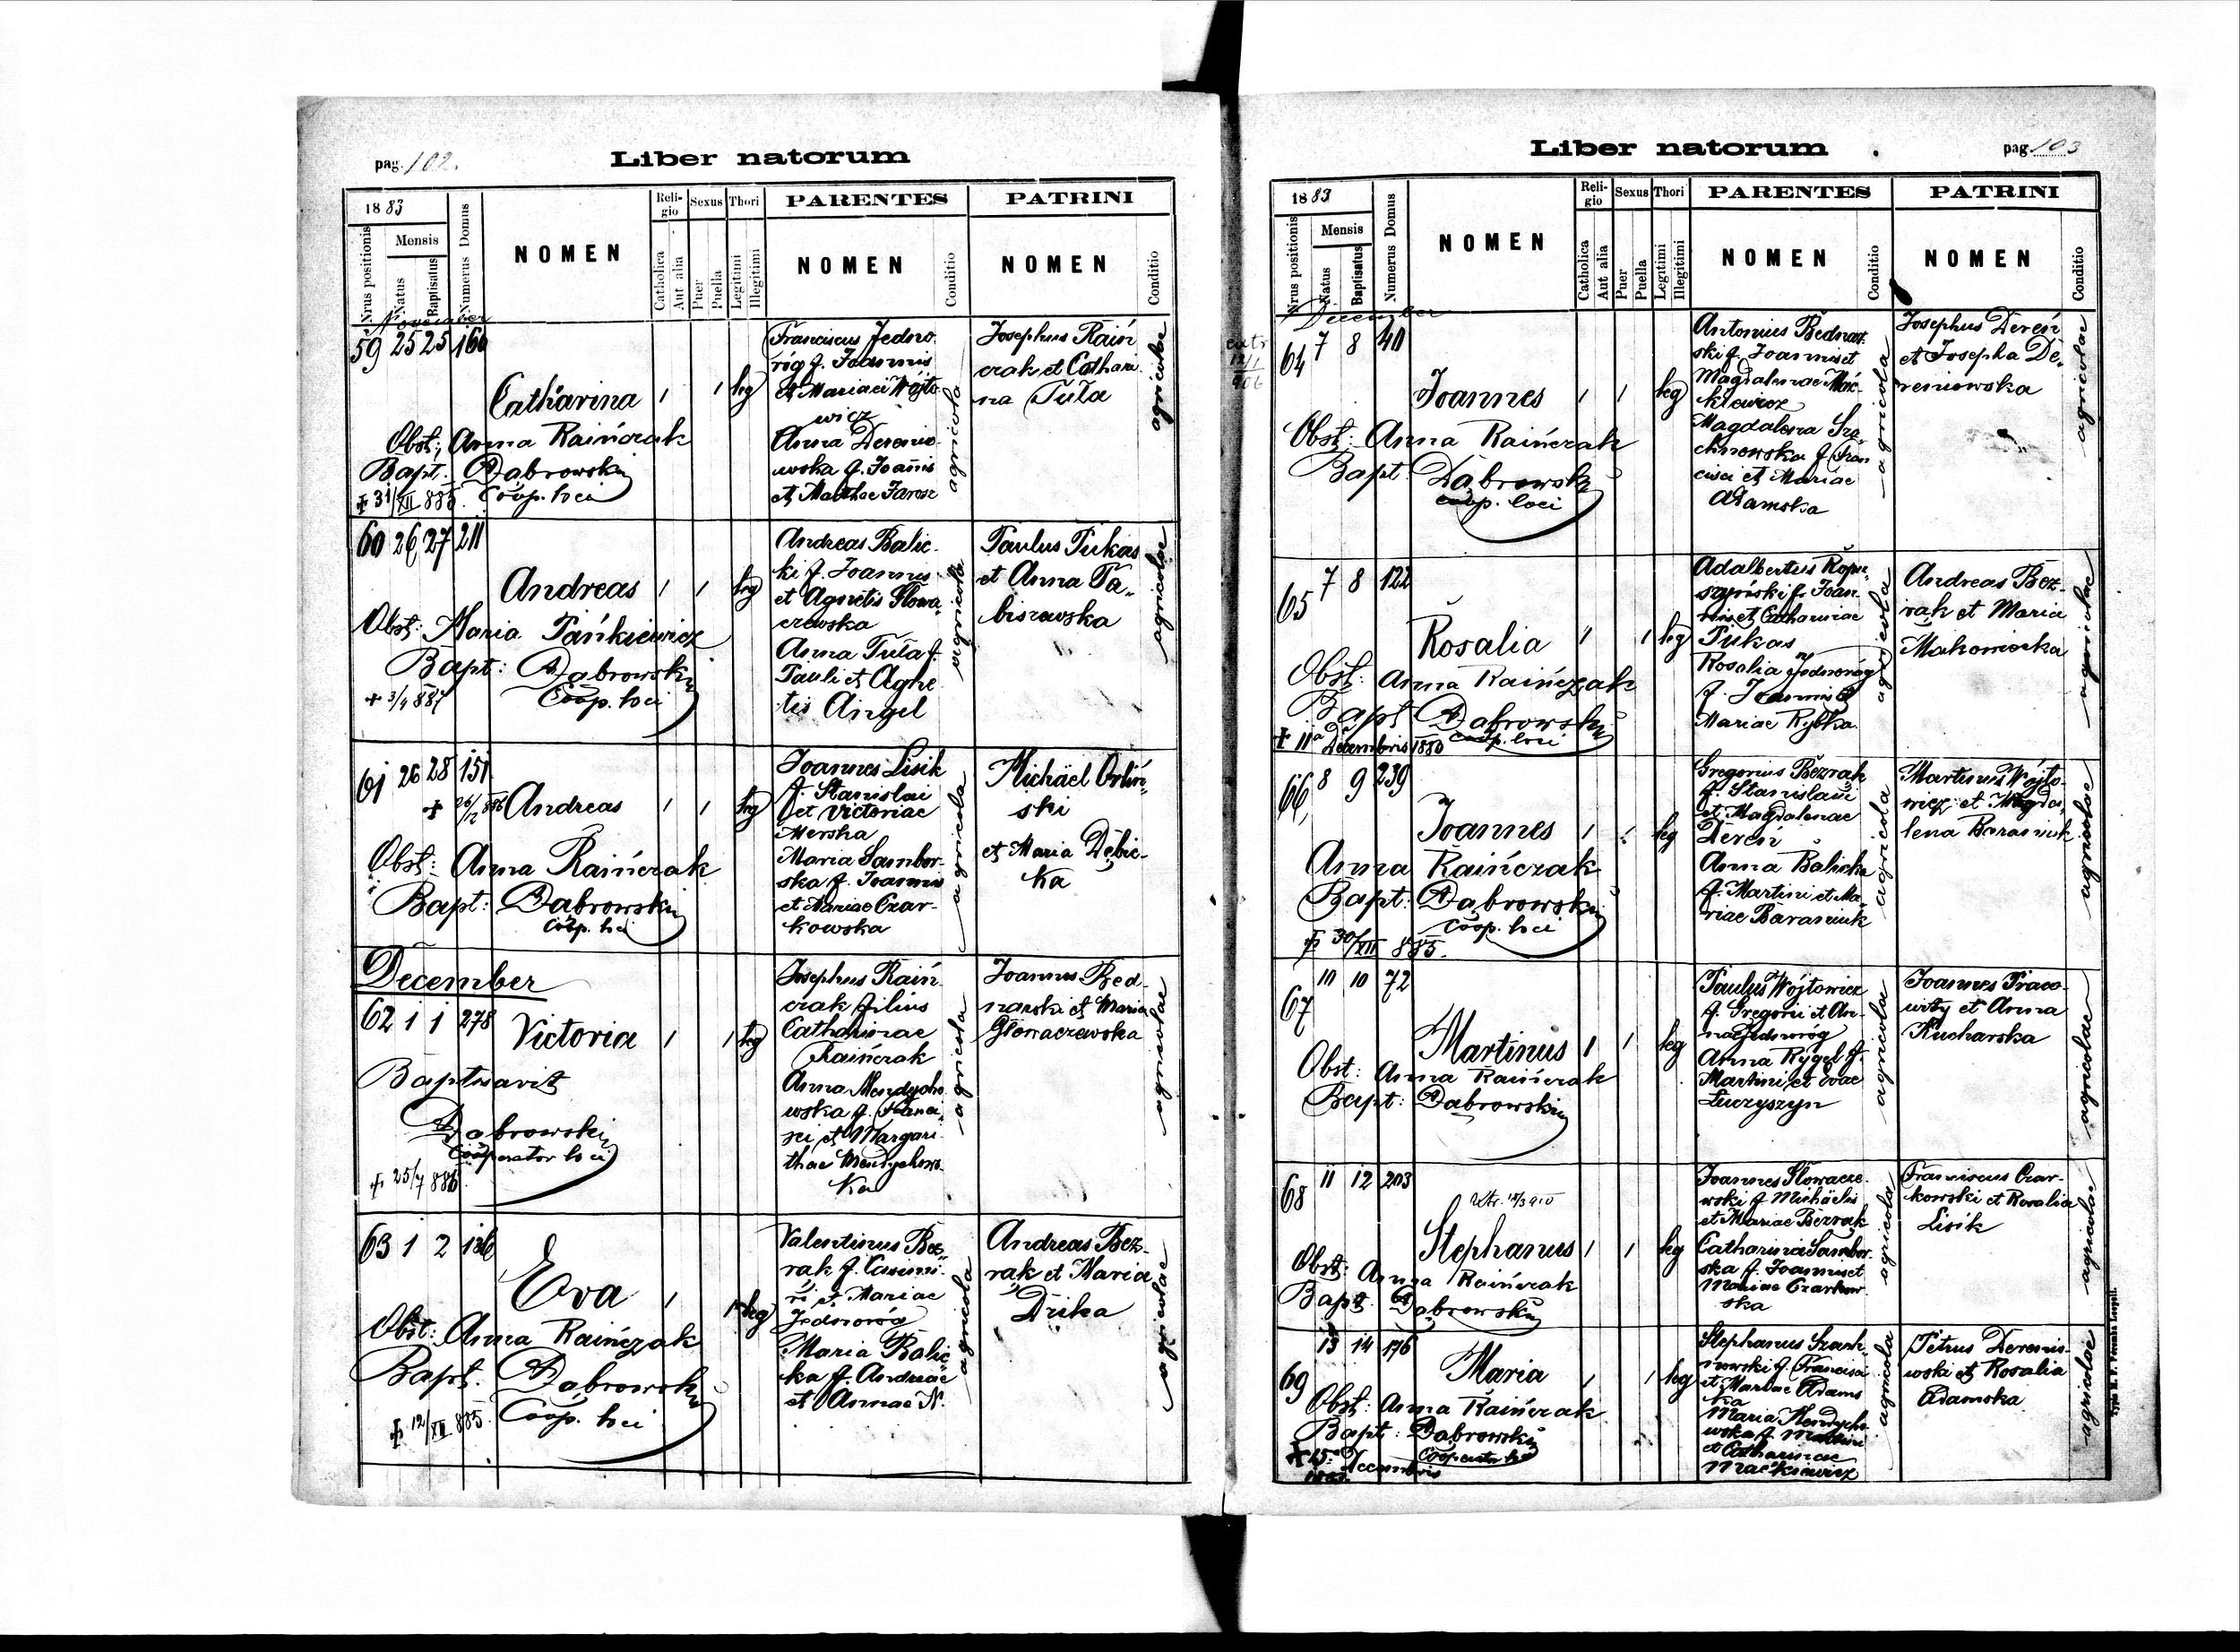 pag. 102.
Liber natorum
1883
Nrus positionis
Mensis
Natus
Baptisatus
Numerus Domus
NOMEN
Religio
Catholica
Aut alia
Sexus
Puer
Puella
Thori
Legitimi
Illegitimi
PARENTES
NOMEN
Conditio
PATRINI
NOMEN
Conditio
November
59 25 25 160
Catharina 1 1 leg
Obst: Anna Raińczak
Bapt: Dąbrowski
Coop. loci
+ 31/XII 885
Franciscus Jedno
róg f. Joannis
et Mariae Wojto
wicz
Anna Derenio
wska f. Joannis
et Marthae Jarosz
agricola
Josephus Raiń
czak et Cathari
na Tuła
agricolae
60 26 27 211
Andreas 1 1 leg
Obst: Maria Pańkiewicz
Bapt: Dąbrowski
Coop. loci
Andreas Balic-
ki f. Joannis
et Agnetis Słowa-
czewska
Anna Tuła f.
Pauli et Agne
tis Angel
agricola
Paulus Pukas
et Anna Ta-
biszewska
agricolae
61 26 28 151
+ 26/12 886
Andreas 1 1 leg
Obst: Anna Raińczak
Bapt: Dąbrowski
Coop. loci
Joannes Lisik
f. Stanislai
et Victoriae
Merska
Maria Sambor-
ska f. Joannis
et Mariae Czar-
kowska
agricola
Michäel Orliń-
ski
et Maria Dębic-
ka
agricolae
December
62 1 1 278
Victoria 1 1 leg
Baptisavit
Dąbrowski
Cooperator loci
+ 25/7 886
Josephus Raiń
czak filius
Catharinae
Raińczak
Anna Mendycho
wska f. Franci
sci et Margari
thae Mendychows
ka
agricola
Joannes Bed-
narski et Maria
Głowaczewska
agricolae
63 1 2 136
Eva 1 1 leg
Obst: Anna Raińczak
Bapt. Dąbrowski
Coop. loci
+ 12/XII 885
Valentinus Bez-
rak f. Casimi-
ri et Mariae
Jednoróg
Maria Balic
ka f. Andreae
et Annae N.
agricola
Andreas Bez-
rak et Maria
Dzika
agricolae
Liber natorum
pag. 103
1883
Nrus positionis
Mensis
Natus
Baptisatus
Numerus Domus
NOMEN
Religio
Catholica
Aut alia
Sexus
Puer
Puella
Thori
Legitimi
Illegitimi
PARENTES
NOMEN
Conditio
PATRINI
NOMEN
Conditio
December
64 7 8 40
Joannes 1 1 leg
Obst: Anna Raińczak
Bapt: Dąbrowski
coop. loci
Antonius Bednar
ski f. Joannis et
Magdalenae Mać-
kiewicz
Magdalena Sza-
chnowska f. Fran
cisci et Mariae
Adamska
agricola
Josephus Dereń
et Josepha De-
reniowska
agricolae
65 7 8 122
Rosalia 1 1 leg
Obst: Anna Raińczak
Bapt Dąbrowski
coop. loci
Adalbertus
f. Joan-
nis et Catharinae
Pukas
Rosalia Jednoróg
f. Joannis et
Mariae Rybka
agricola
Andreas Bez-
rak et Maria
Makowiecka
agricolae
66 8 9 239
Joannes 1 1 leg
Anna Raińczak
Bapt: Dąbrowski
Coop. loci
+ 30/XII 885.
Gregorius Bezrak
f. Stanislai
et Magdalenae
Dereń
Anna Balicka
f. Martini et Ma-
riae Baraniuk
agricola
Martinus Wójto-
wicz et Magda-
lena Baraniuk
agricolae
67 10 10 72
Martinus 1 1 leg
Obst: Anna Raińczak
Bapt: Dąbrowski
Paulus Wójtowicz
f. Gregorii et An-
nae Jednoróg
Anna Rygel f.
Martini et Evae
Łuczyszyn
agricola
Joannes Praco-
wity et Anna
Kucharska
agricolae
68 11 12 203
Stephanus 1 1 leg
Obst: Anna Raińczak
Bapt. Dąbrowski
Joannes Słowacze
wski f. Michäelis
et Mariae Bezrak
Catharina Sambor
ska f. Joannis et
Mariae Czarkow
ska
agricola
Franciscus Czar-
kowski et Rosalia
Lisik
agricolae
69 13 14 176
Maria 1 1 leg
Obst: Anna Raińczak
Bapt: Dąbrowski
Cooperator loci
Stephanus Szach-
nowski f. Francisci
et Mariae Adams
ka
Maria Mendycho
wska f. Martini
et Catharinae
Maćkiewicz
agricola
Petrus Derenio-
wski et Rosalia
Adamska
agricolae